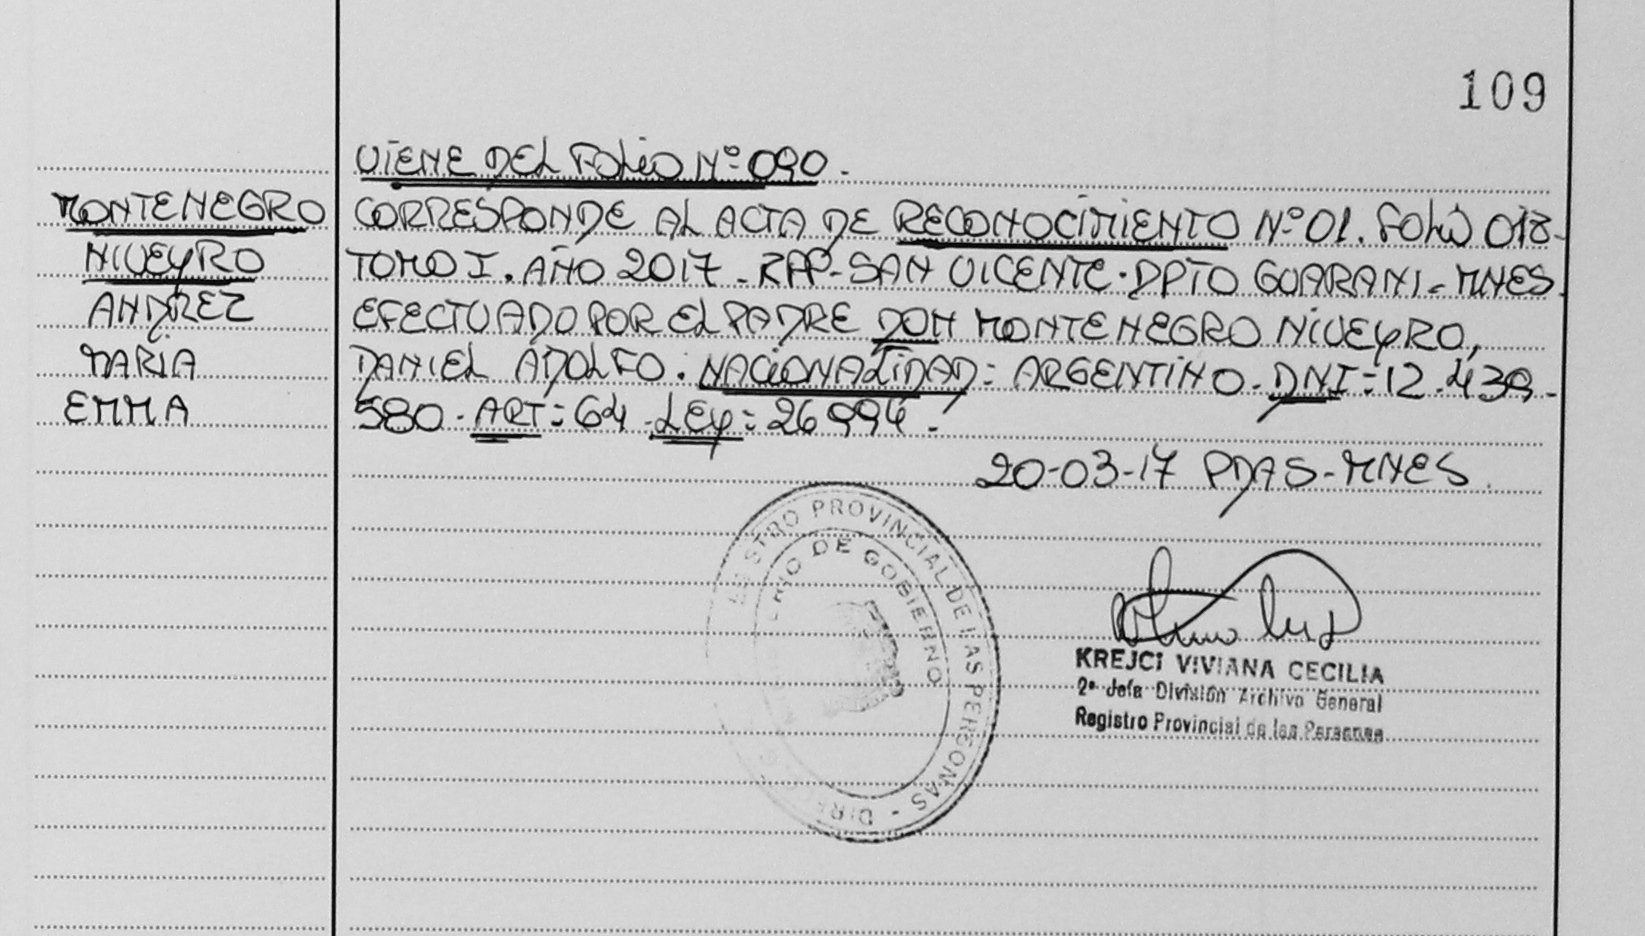 109
VIENE DEL FOLIO Nº 090.
MONTENEGRO
NIVEYRO
ANDREZ
MARIA
EMMA
CORRESPONDE AL ACTA DE RECONOCIMIENTO Nº 01. FOLIO 018-
TOMO I. AÑO 2017 - RPP-SAN VICENTE. DPTO GUARANI - MNES.
EFECTUADO POR EL PADRE DON MONTENEGRO NIVEYRO,
DANIEL ADOLFO. NACIONALIDAD: ARGENTINO. DNI: 12.439.
580. ART: 64 LEY: 26994.
20-03-17 PDAS-MNES.
REGISTRO PROVINCIAL DE LAS PERSONAS - DIREC
DE GOBIERNO
KREJCI VIVIANA CECILIA
2ª Jefa División Archivo General
Registro Provincial de las Personas